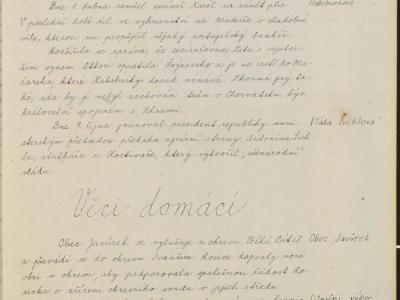 Dne 1. dubna zemřel císař Karel na zánět plic. Habsburkové
V poslední době žil ve vyhnanství na Madeiře v chudobné
vile, kterou mu propůjčil nějaký portugalský bankéř.
Rozšířila se zpráva, že excísařovna Zita s nejstar-
ším synem Ottou opustila Švýcarsko a je na cestě do Ma-
ďarska, které Habsburky dosud uznává. Zkoumá prý ta-
ké, zda by jí nebyl zachován trůn v Chorvatsku, býv.
království spojeném s Uhrami.
Dne 7. října jmenoval president republiky mini- Vláda Švehlova
sterským předsedou předáka agrární strany Antonína Šveh-
lu, statkáře z Hostivaře, který vytvořil „všenárodní“
vládu.
Věci domácí
Obec Javůrek se vylučuje z okresu Velké Bíteš Obec Javůrek
a převádí se do okresu Ivančice. Rosice dopsaly nové
obci v okresu, aby podporovala společnou žádost Ro-
sicka o zřízení okresního soudu v jejich středu.